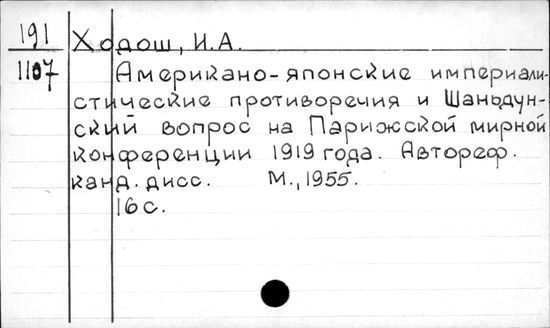 191 Ходош, И.А.
1107 Американо-японские империали-
стические противоречия и Шаньдун-
ский вопрос на Парижской мирной
конференции 1919 года. Автореф.
канд. дисс. М., 1955.
16 с.